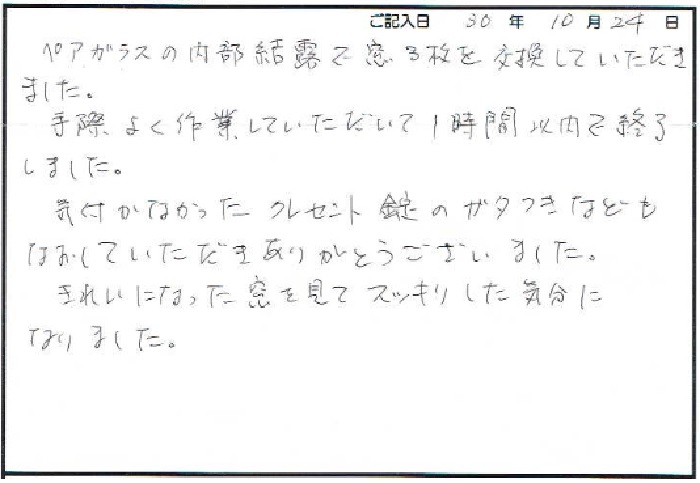 ご記入日 30 年 10 月 24 日
ペアガラスの内部結露で窓3枚を交換していただき
ました。
手際よく作業していただいて1時間以内で終了
しました。
気付かなかったクレセント錠のガタつきなども
なおしていただきありがとうございました。
きれいになった窓を見てスッキリした気分に
なりました。